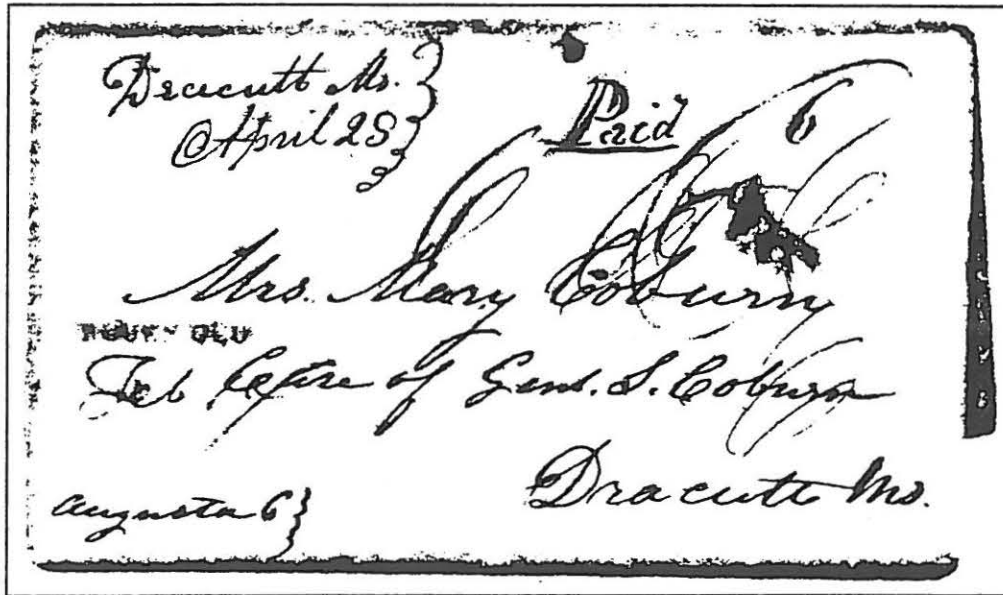 Dracutt Ms.
April 28
Paid 6
Mrs. Mary Coburn
Care of Genl. S. Coburn
Dracutt Ms.
Augusta 6